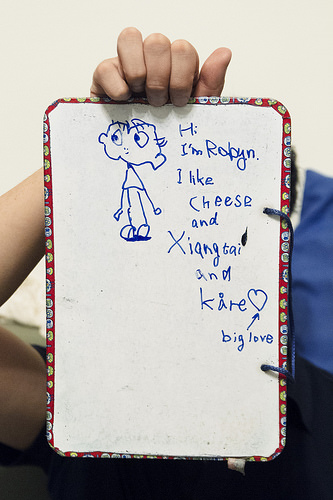 Hi
I'm Robyn.
I like
cheese
and
Xiangtai
and
kåre♡
big love